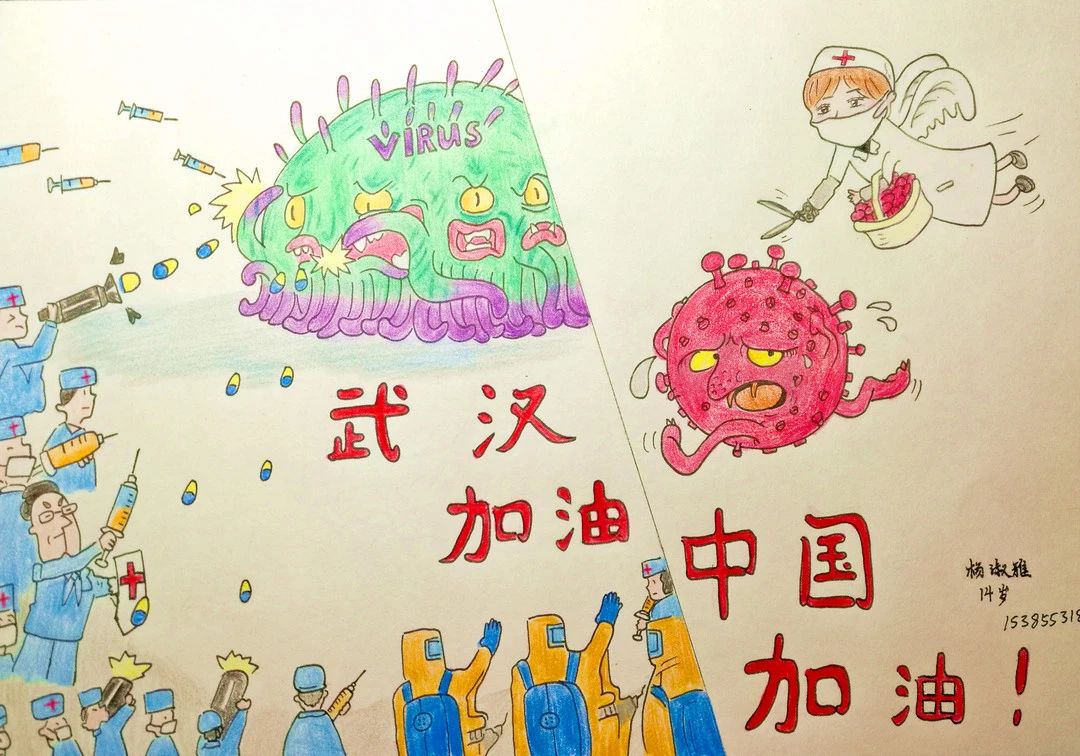 VIRUS
武汉
加油
中国
加油！
杨淑雅
14岁
15385531